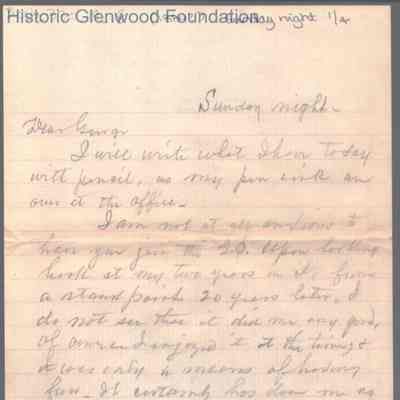 Historic Glenwood Foundation
Sunday night 1/4
Sunday night -
Dear George
I will write what I have today
with pencil, as my pen ink are
over at the office -
I am not at all anxious to
have you join the
back at my two years in it, from
a stand point 20 years later, I
do not see that it did me any good,
of course I enjoyed it at the time &
it was only a means of having
fun - It certainly has done me no